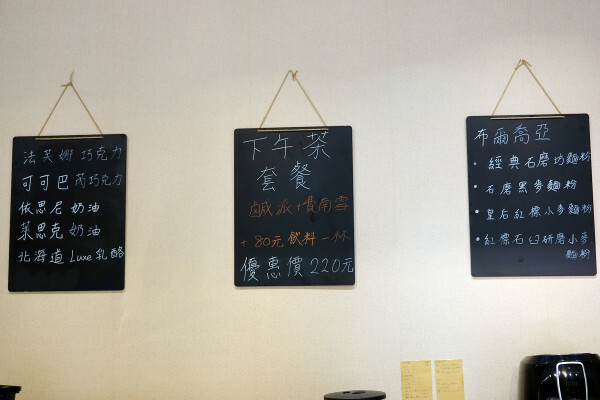 法芙娜巧克力
可可巴芮巧克力
依思尼奶油
萊思克奶油
北海道Luxe乳酪
下午茶
套餐
鹹派+費南雪
+80元飲料一杯
優惠價220元
布爾喬亞
• 經典石磨坊麵粉
• 石磨黑麥麵粉
• 皇石紅標小麥麵粉
• 紅標石臼研磨小麥
麵粉